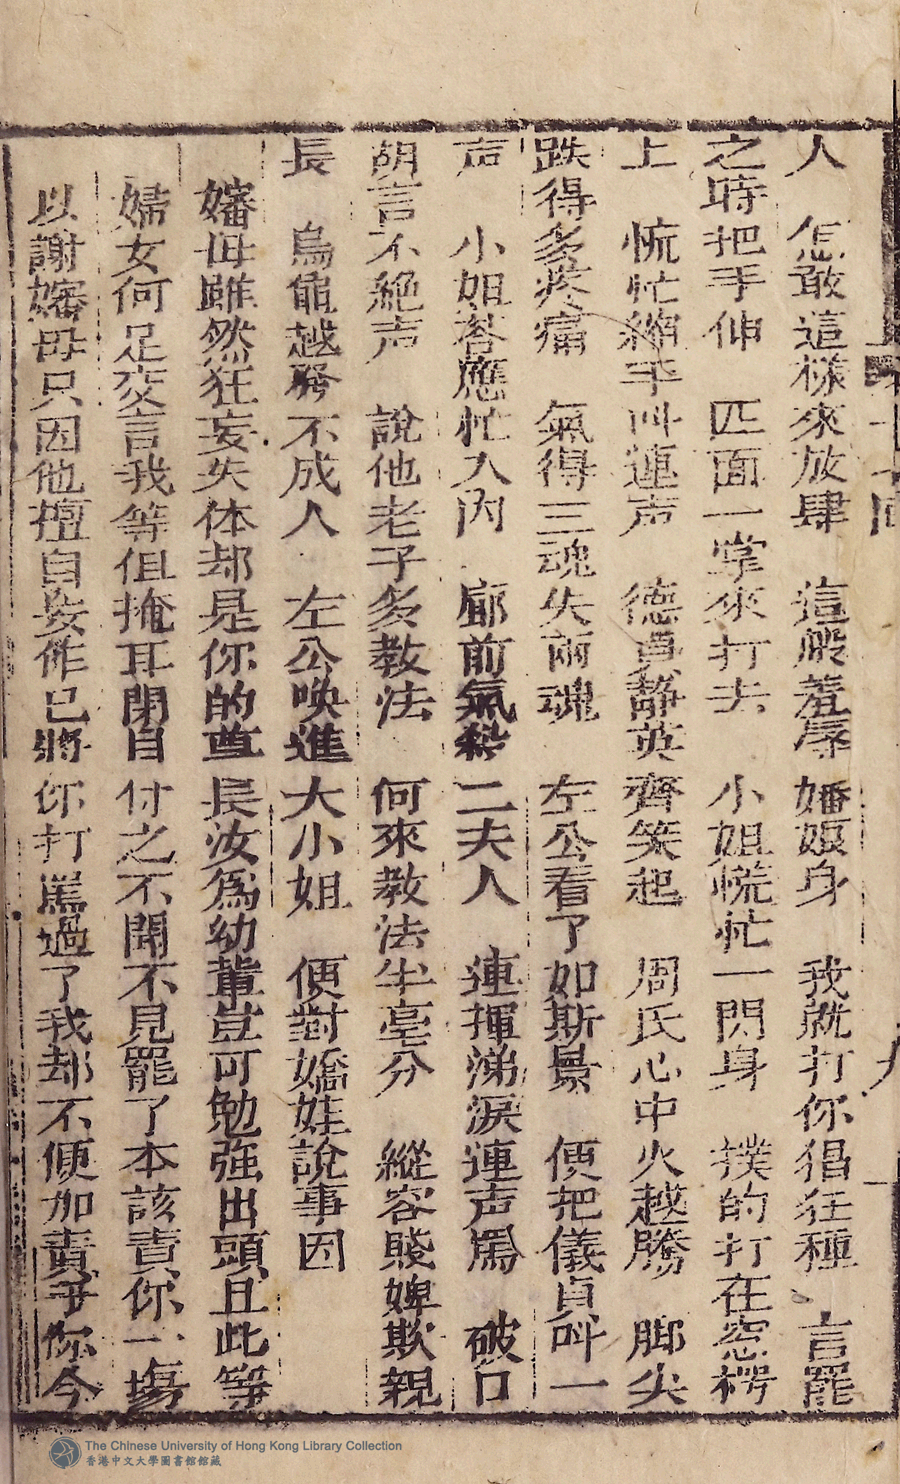 人 怎敢這樣來放肆 這般羞辱嬸娘身 我就打你猖狂種 言罷
之時把手伸 匹面一掌來打去 小姐慌忙一閃身 撲的打在窓楞
上 慌忙縮手叫連声 德貞静英齊笑起 周氏心中火越騰 脚尖
跌得多疼痛 氣得三魂失兩魂 左公看了如斯景 便把儀貞叫一
声 小姐荅應忙入內 廊前氣殺二夫人 連揮涕淚連声罵 破口
胡言不絕声 說他老子多教法 何來教法半毫分 縱容賤婢欺親
長 烏龜越發不成人 左公喚進大小姐 便對嬌娃說事因
嬸母雖然狂妄失体却是你的尊長汝為幼輩豈可勉強出頭且此等
婦女何足交言我等但掩耳閉目付之不聞不見罷了本該責你一塲
以謝嬸母只因他擅自妄作已將你打罵過了我却不便加責爭你今
十七回
九
The Chinese University of Hong Kong Library Collection
香港中文大學圖書館館藏